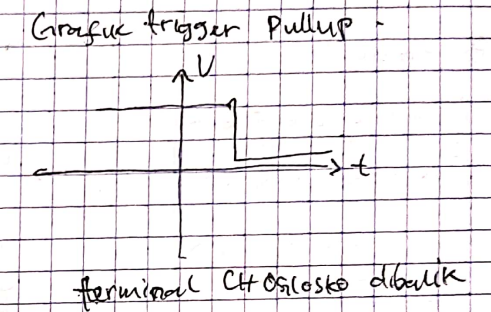 Grafik trigger Pullup -
V
t
terminal CH Osilosko dibalik